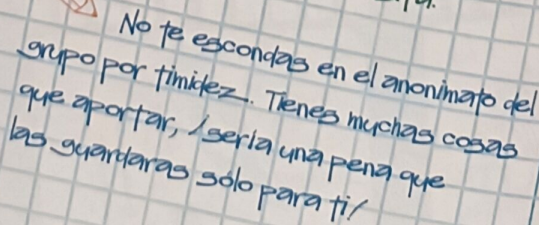 No te escondas en el anonimato del
grupo por timidez. Tienes muchas cosas
que aportar, ¡sería una pena que
las guardaras sólo para ti!